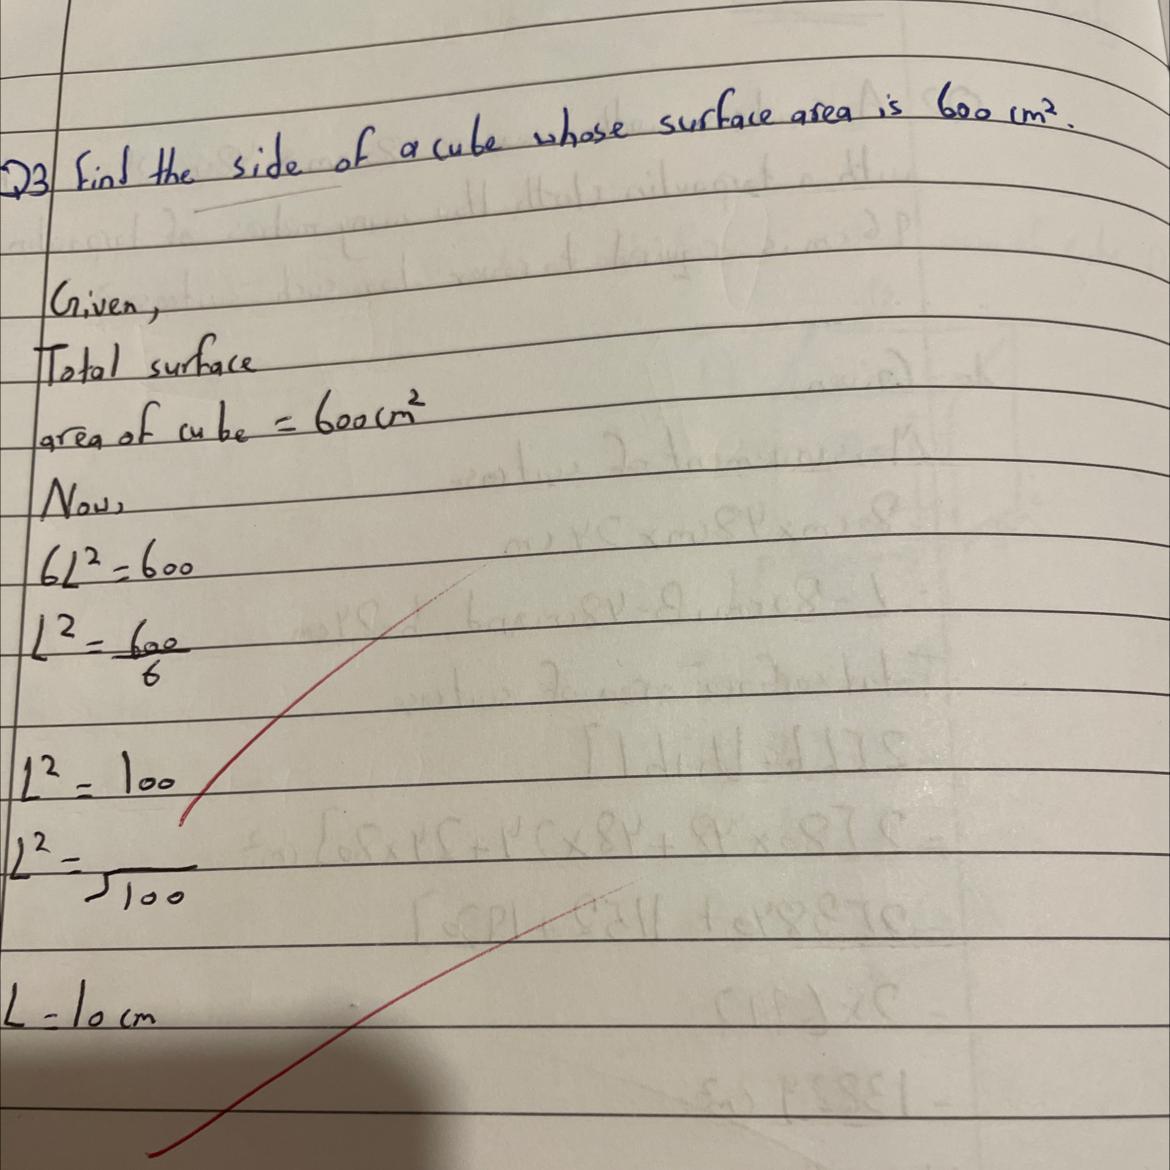 Q3 Find the side of a cube whose surface area is 600 cm².
Given,
Total surface
area of cube = 600cm²
Now,
6L² = 600
L² = 600/6
L² = 100
L² = √100
L = 10 cm